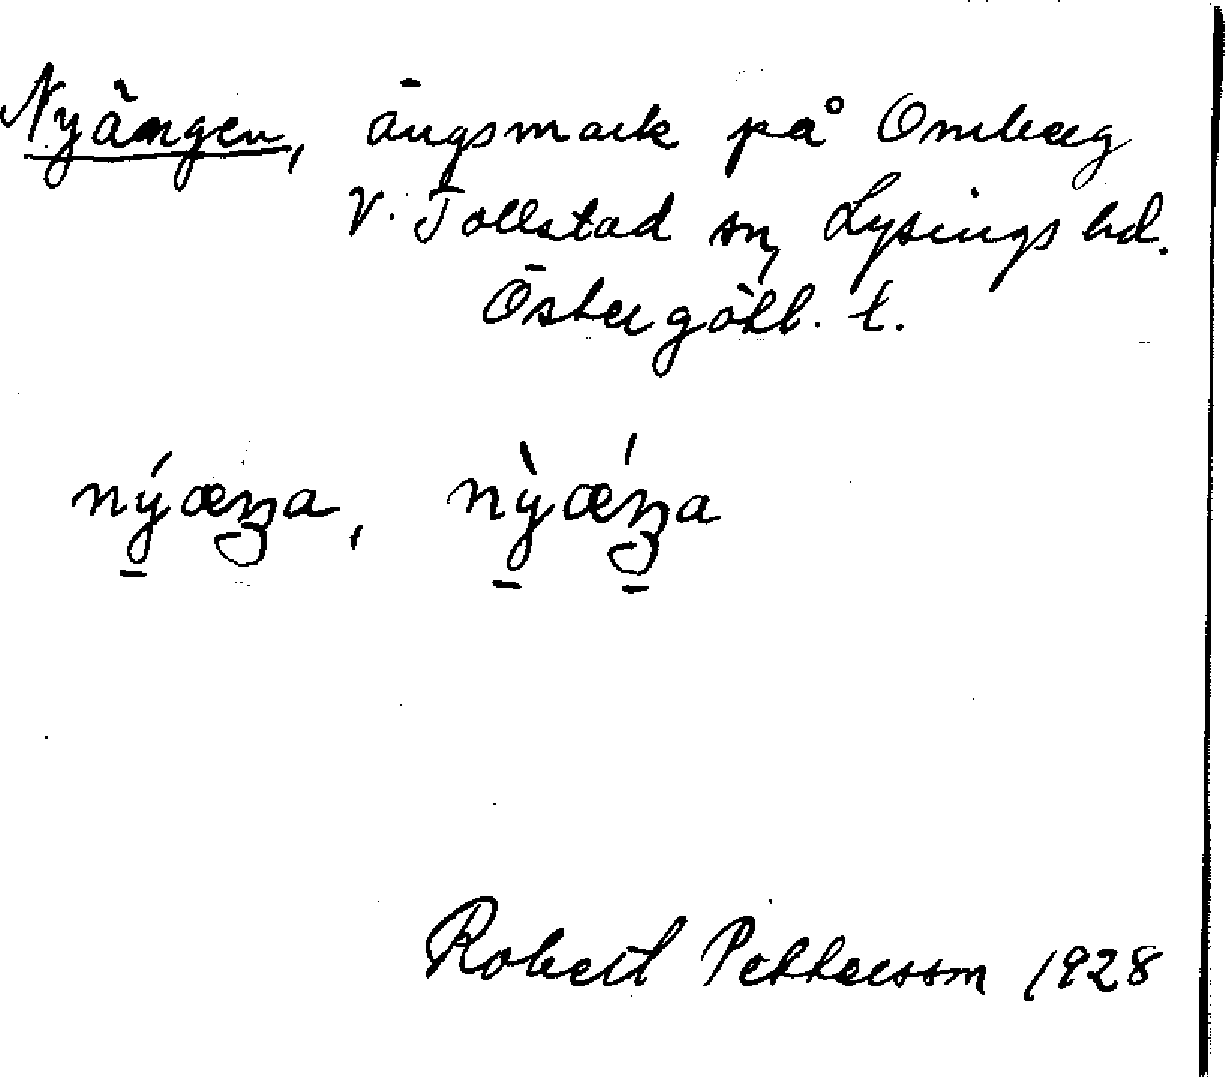 Nyängen, ängsmark på Omberg
V. Tollstad sn, Lysings hd.
Östergötl. l.
nýæŋa, nỳǽŋa
Robert Pettersson 1928